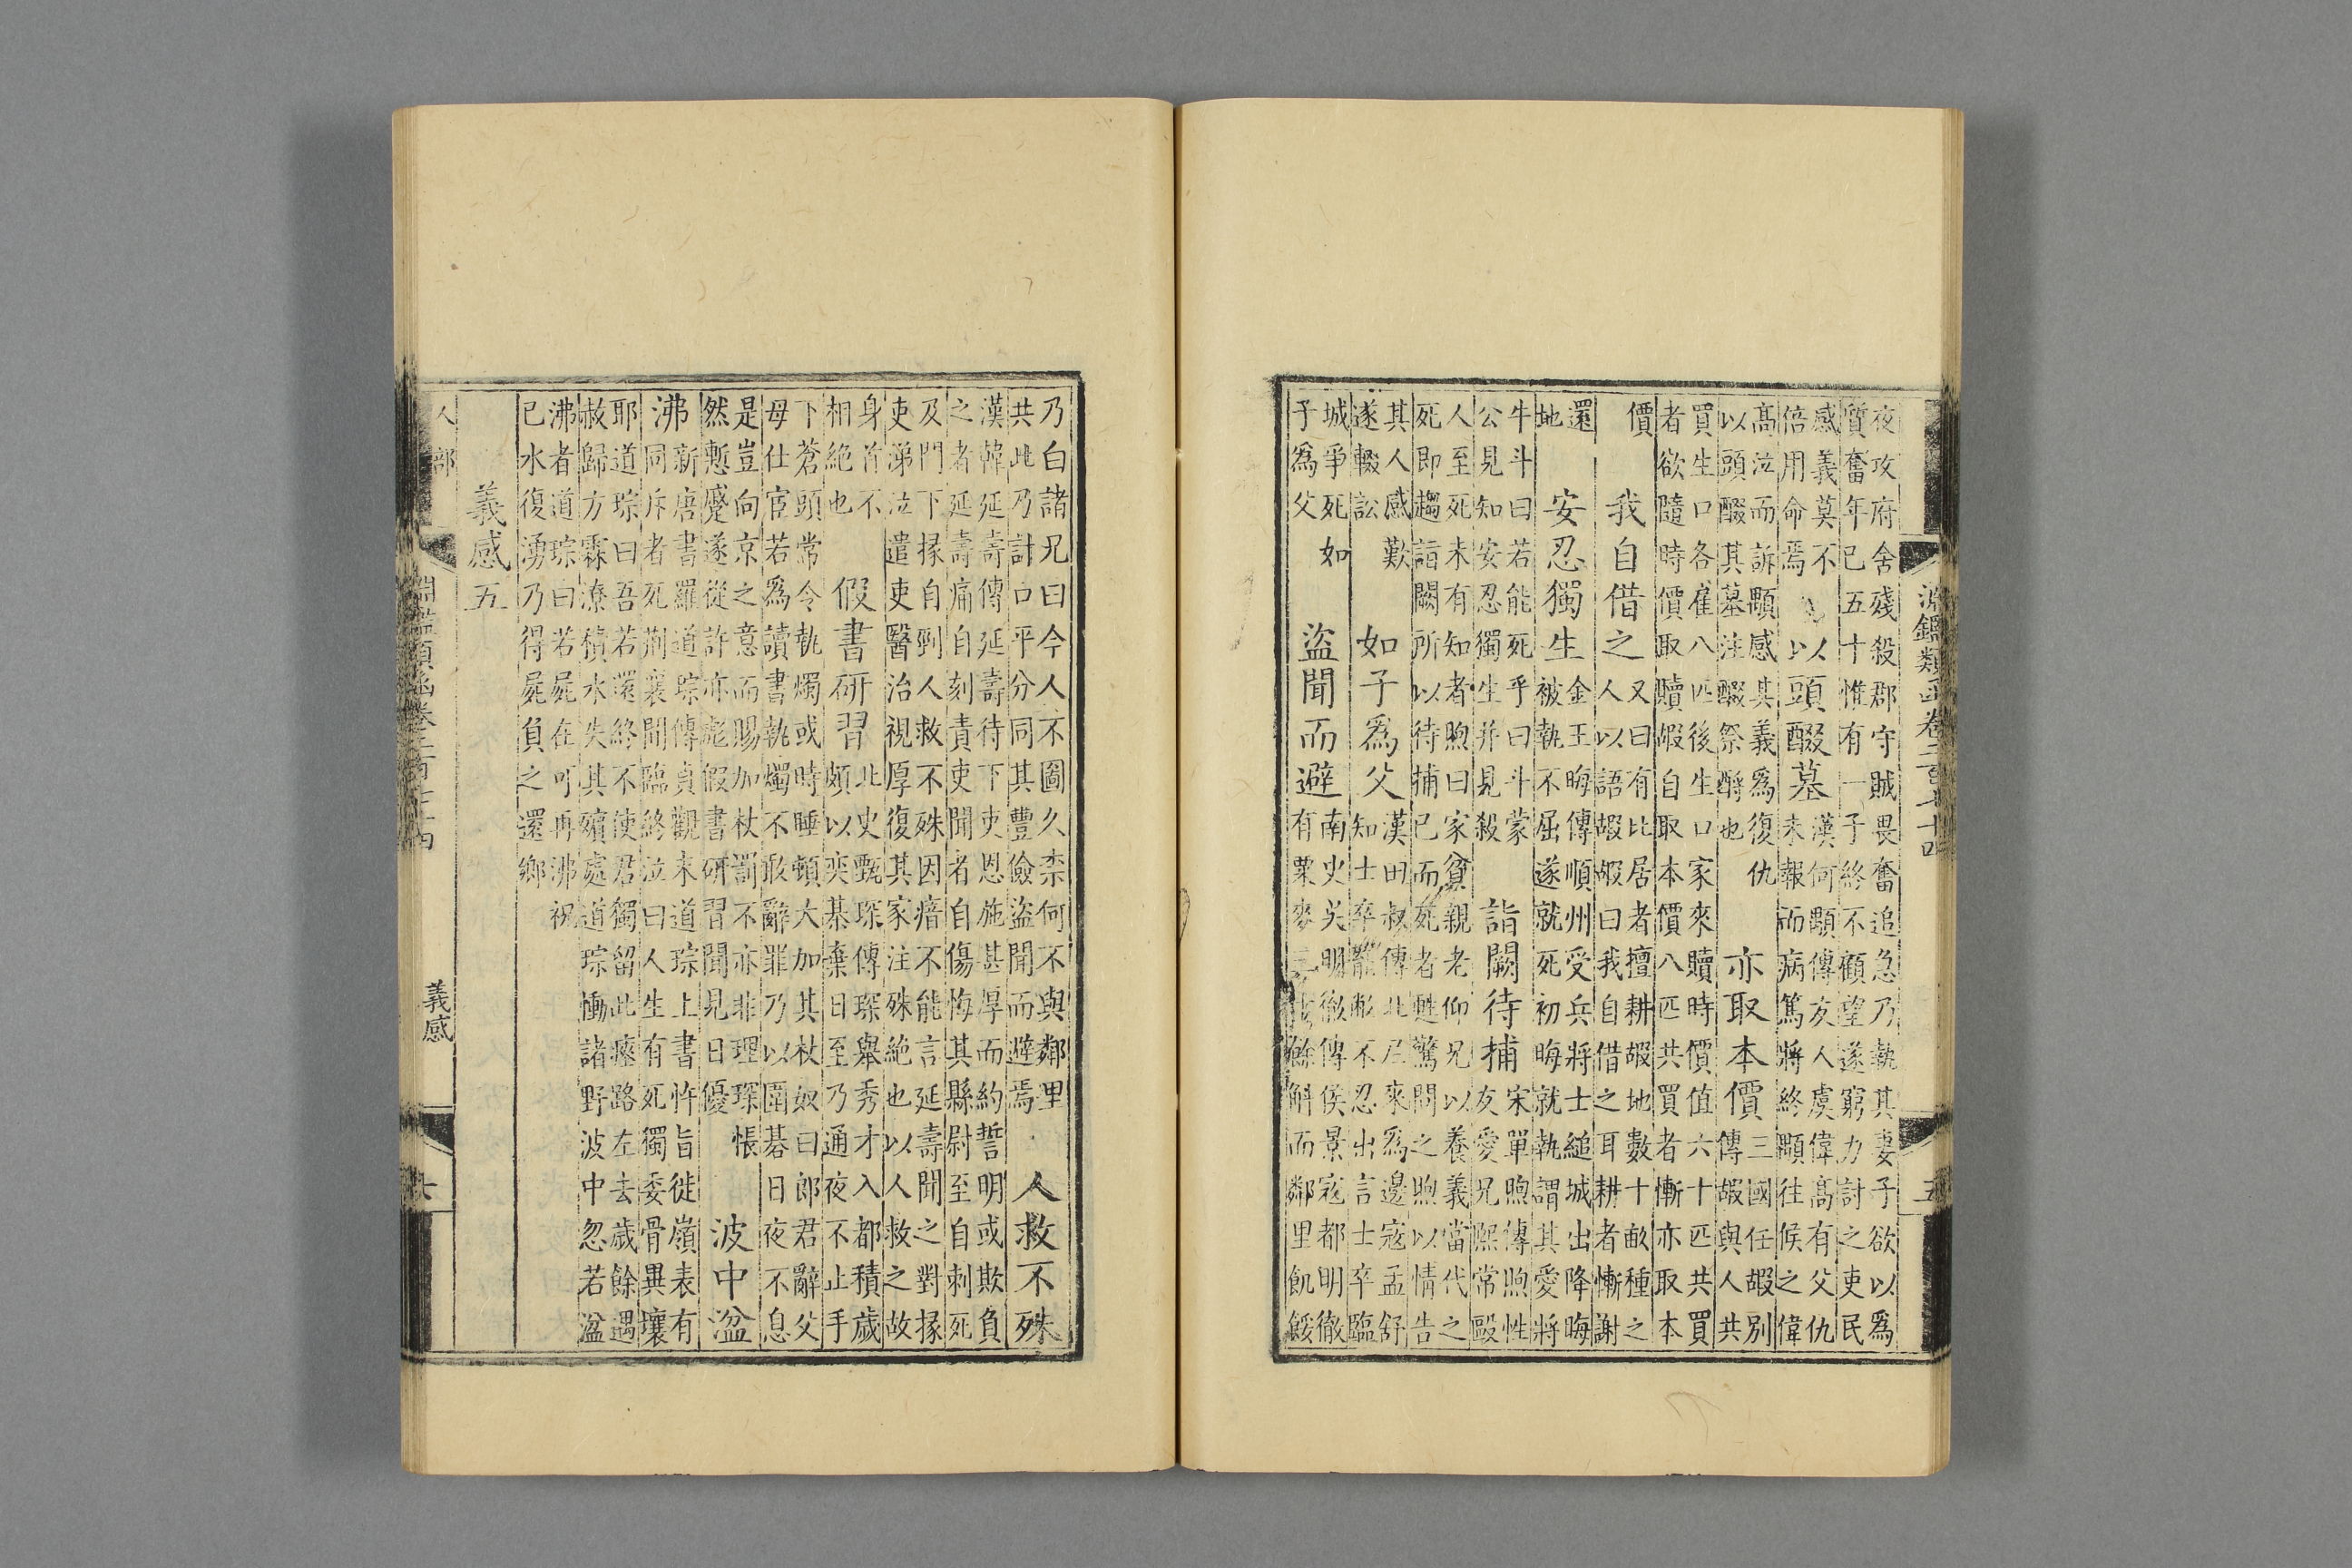 淵鑑類函卷二百七十四
五
夜攻府舍殘殺郡守賊畏奮追急乃執其妻子欲以爲
質奮年已五十惟有一子終不顧望遂窮力討之吏民
感義莫不
倍用命焉
以頭醊墓
漢何顒傳友人虞偉高有父仇
未報而病篤將終顒往候之偉
高泣而訴顒感其義爲復仇
以頭醊其墓注醊祭酹也
亦取本價
三國任嘏別
傳嘏與人共
買生口各雇八匹後生口家來贖時價值六十匹共買
者欲隨時價取贖嘏自取本價八匹共買者慚亦取本
價
我自借之
又曰有比居者擅耕嘏地數十畝種之
人以語嘏嘏曰我自借之耳耕者慚謝
還
地
安忍獨生
金王晦傳順州受兵將士縋城出降晦
被執不屈遂就死初晦就執謂其愛將
牛斗曰若能死乎曰斗蒙
公見知安忍獨生并見殺
詣闕待捕
宋單煦傳煦性
友愛兄熙常毆
人至死未有知者煦曰家貧親老仰兄以養義當代之
死即趨詣闕所以待捕已而死者甦驚問之煦以情告
其人感歎
遂輟訟
如子爲父
漢田叔傳北尼來爲邊寇孟舒
知士卒罷敝不忍出言士卒臨
城爭死如
子爲父
盜聞而避
南史吳明徹傳侯景寇都明徹
有粟麥三千餘斛而鄰里飢餒
乃白諸兄曰今人不圖久柰何不與鄰里
共此乃計口平分同其豐儉盜聞而避焉
人救不殊
漢韓延壽傳延壽待下吏恩施甚厚而約誓明或欺負
之者延壽痛自刻責吏聞者自傷悔其縣尉至自刺死
及門下掾自剄人救不殊因瘖不能言延壽聞之對掾
吏涕泣遣吏醫治視厚復其家注殊絶也以人救之故
身首不
相絶也
假書研習
北史甄琛傳琛舉秀才入都積歲
頗以奕棊棄日至乃通夜不止手
下蒼頭常令執燭或時睡頓大加其杖奴曰郎君辭父
母仕宦若爲讀書執燭不敢辭罪乃以圍碁日夜不息
是豈向京之意而賜加杖罰不亦非理琛悵
然慙感遂從許亦彪假書研習聞見日優
波中湓
沸
新唐書羅道琮傳貞觀末道琮上書忤旨徙嶺表有
同斥者死荆襄間臨終泣曰人生有死獨委骨異壤
耶道琮曰吾若還終不使君獨留此瘞路左去歲餘遇
赦歸方霖潦積水失其殯處道琮慟諸野波中忽若湓
沸者道琮曰若屍在可再沸祝
已水復湧乃得屍負之還鄉
義感五
人部
淵鑑類函卷二百七十四
義感